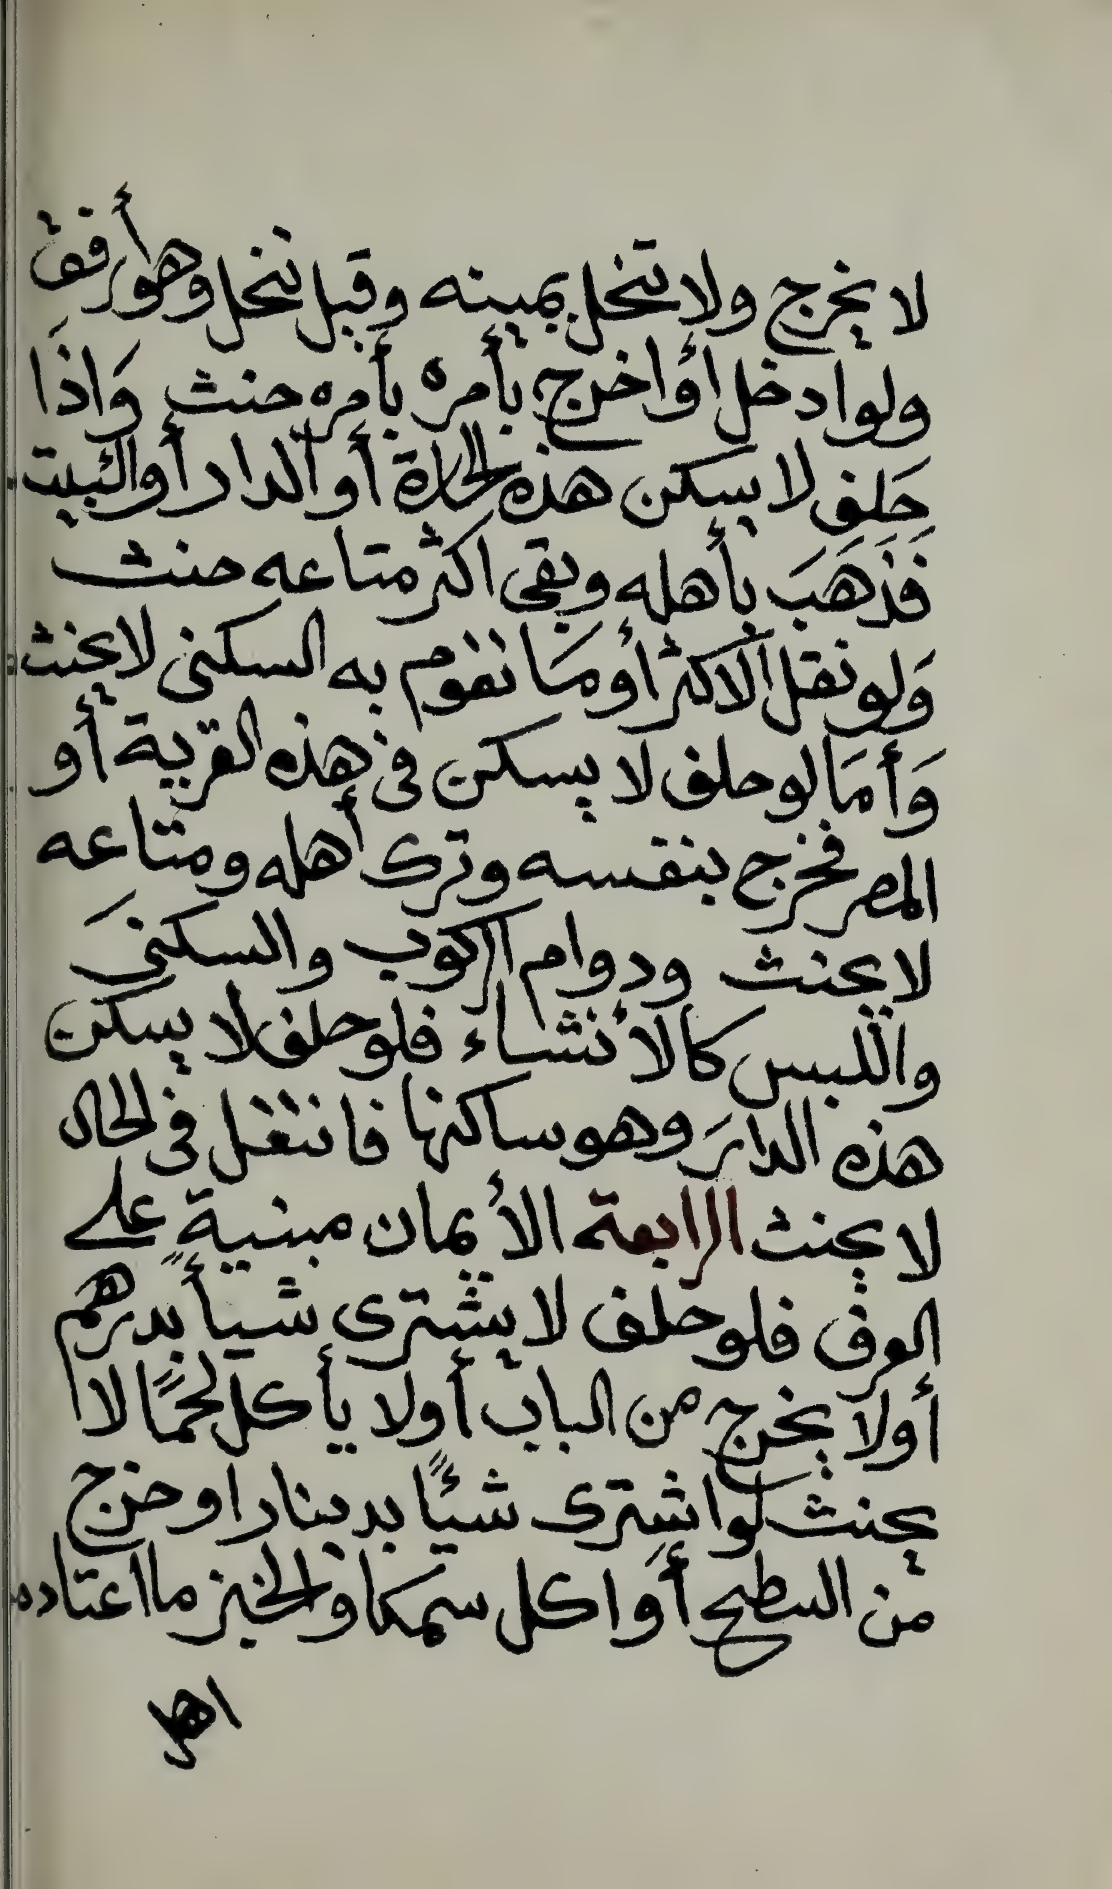 لا يخرج ولا تنحل يمينه وقيل تنحل وهو أرفق
ولو ادخل أو اخرج بأمره بأمره حنث وَاذَا
حَلف لا يسكن هذه الحارة أو الدار أو البيت
فَذَهَبَ بأهله وبقى اكثر متاعه حنث
وَلو نقل الاكثر أو مَا تقوم به السكنى لا يحنث
وَأمَا لو حلف لا يسكن فى هذه القرية أو
المصر فخرج بنفسه وترك أهله ومتاعه
لا يحنث ودوام الركوب والسكنىَ
واللبس كالأنشاء فلو حلف لا يسكن
هذه الدارَ وهو ساكنها فانتقل فى الحال
لا يحنث الرابعة الأيمان مبنية على
العرف فلو حلف لا يشترى شيأً بدرهم
أولا يخرج من الباب أولا يأكل لحمًا لا
يحنث لو اشترى شيئًا بدينار او خرج
من السطح أو اكل سمكا والخبز ما اعتاده
اهل